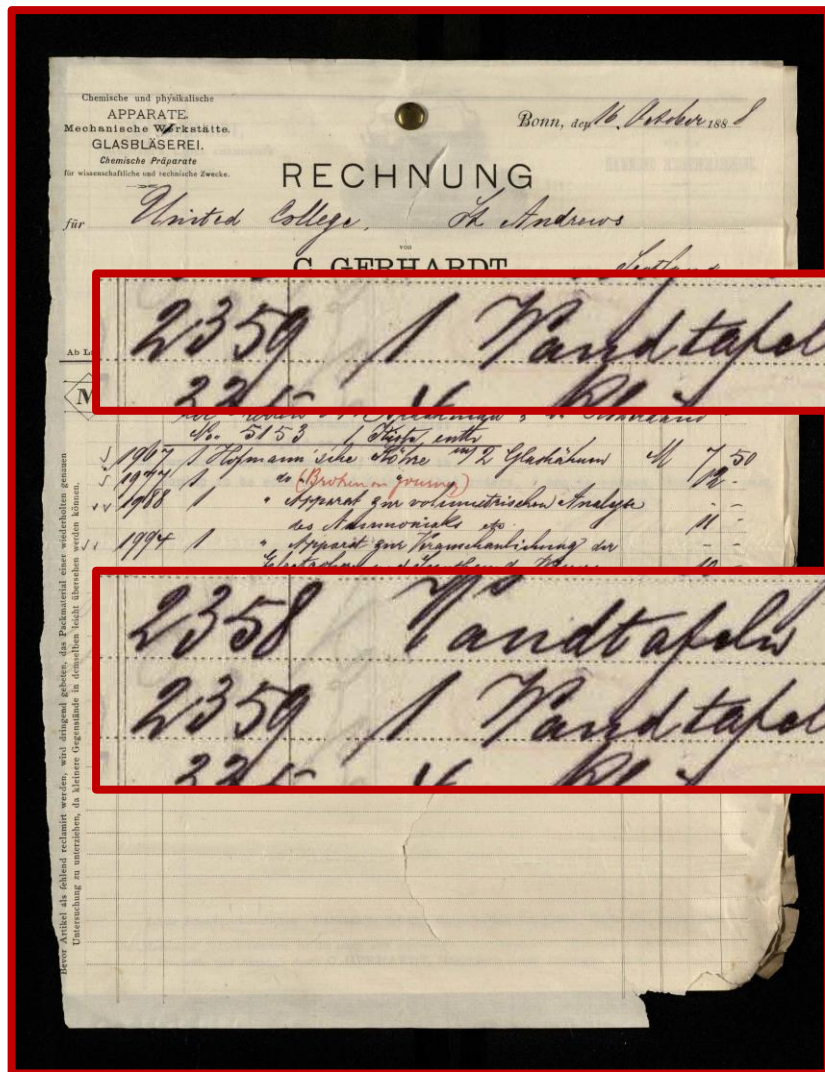 Chemische und physikalische
APPARATE.
Mechanische Werkstätte.
GLASBLÄSEREI.
Chemische Präparate
für wissenschaftliche und technische Zwecke.
Bonn, den 16. October 1888
RECHNUNG
für United College. St. Andrews
von
C. GERHARDT
Scotland
2359 1 Wandtafel
Ab
M
No. 5153 1 Kiste, enth
1967 1 Hofmann'sche Röhre m/ 2 Glashähnen M 7 50
1977 1 do (Broken on journey) 12 -
1988 1 " Apparat zur volumetrischen Analyse - -
des Ammoniaks etc. 11 -
1994 1 " Apparat zur Veranschaulichung der - -
2358 Wandtafeln
2359 1 Wandtafel
Bevor Artikel als fehlend reclamirt werden, wird dringend gebeten, das Packmaterial einer wiederholten genauen
Untersuchung zu unterziehen, da kleinere Gegenstände in demselben leicht übersehen werden können.